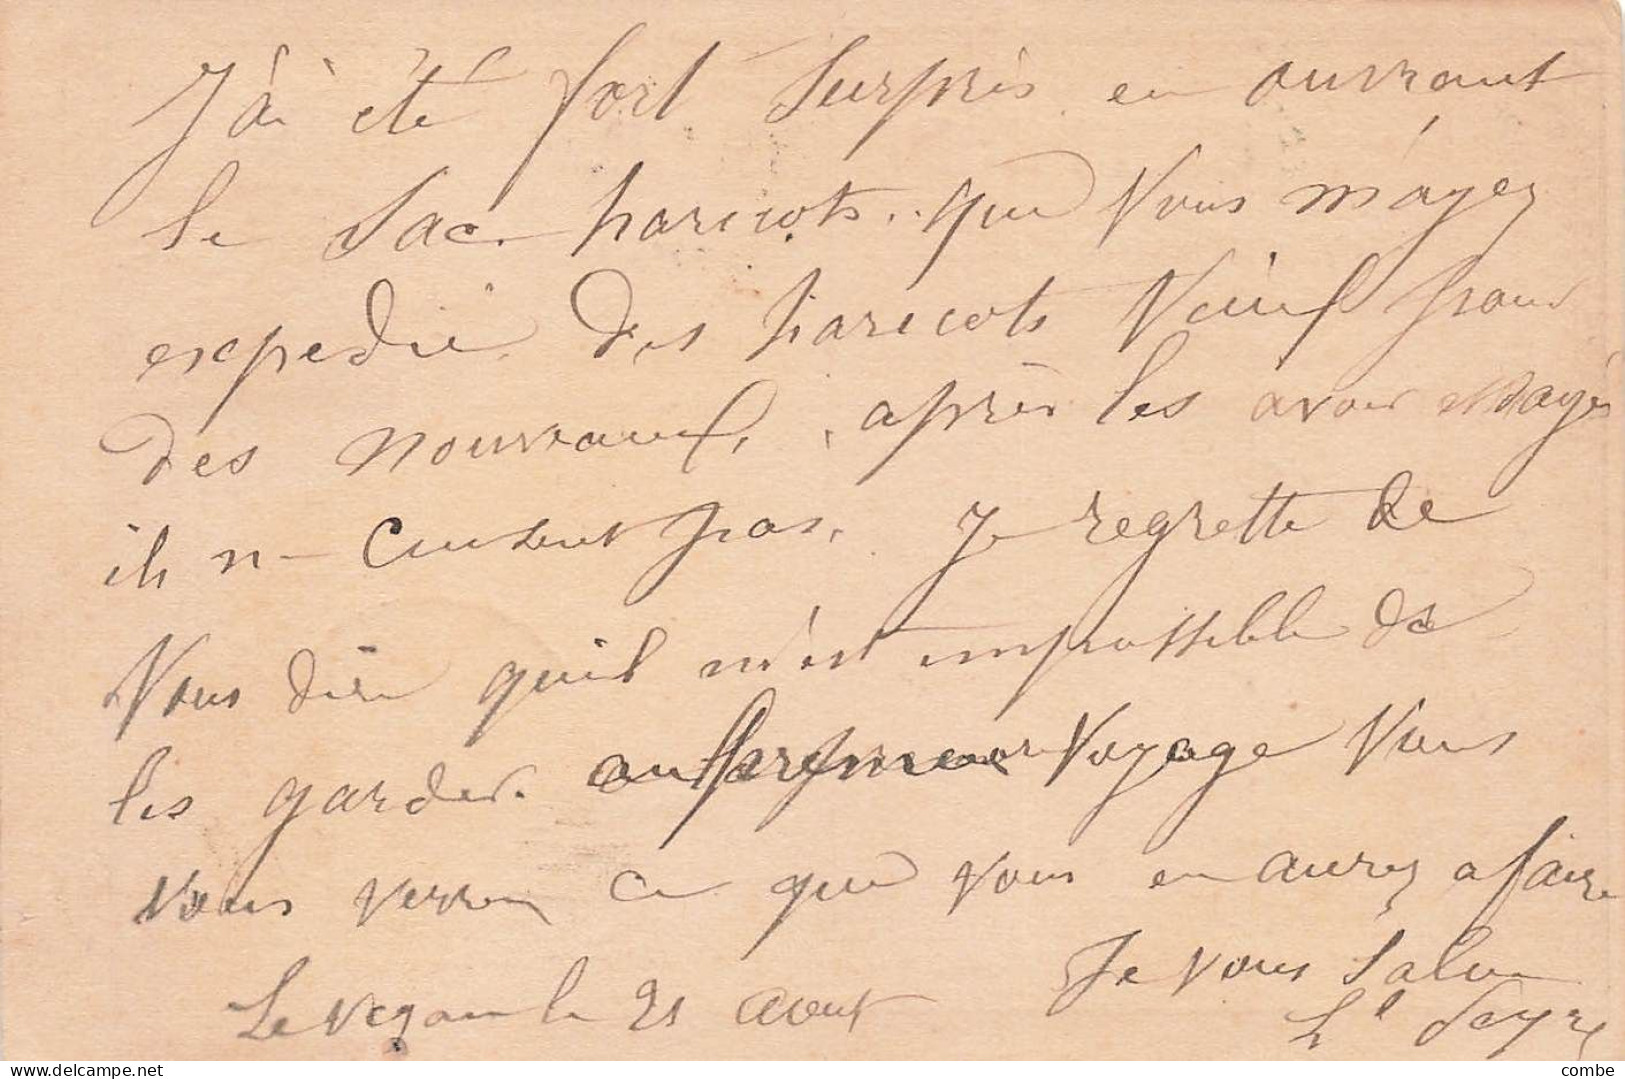 J'ai été fort surpris en ouvrant
le sac haricots. que vous m'ayez
expedié. Des haricots vieux pour
des nouveaux, après les avoir essayés
ils ne cuisent pas. Je regrette de
vous dire qu'il m'est impossible de
les garder. au premier voyage vous
vous verrez ce que vous en aurez a faire
Je vous salue
Le Vegan le 21 aout
delcampe.net
combe